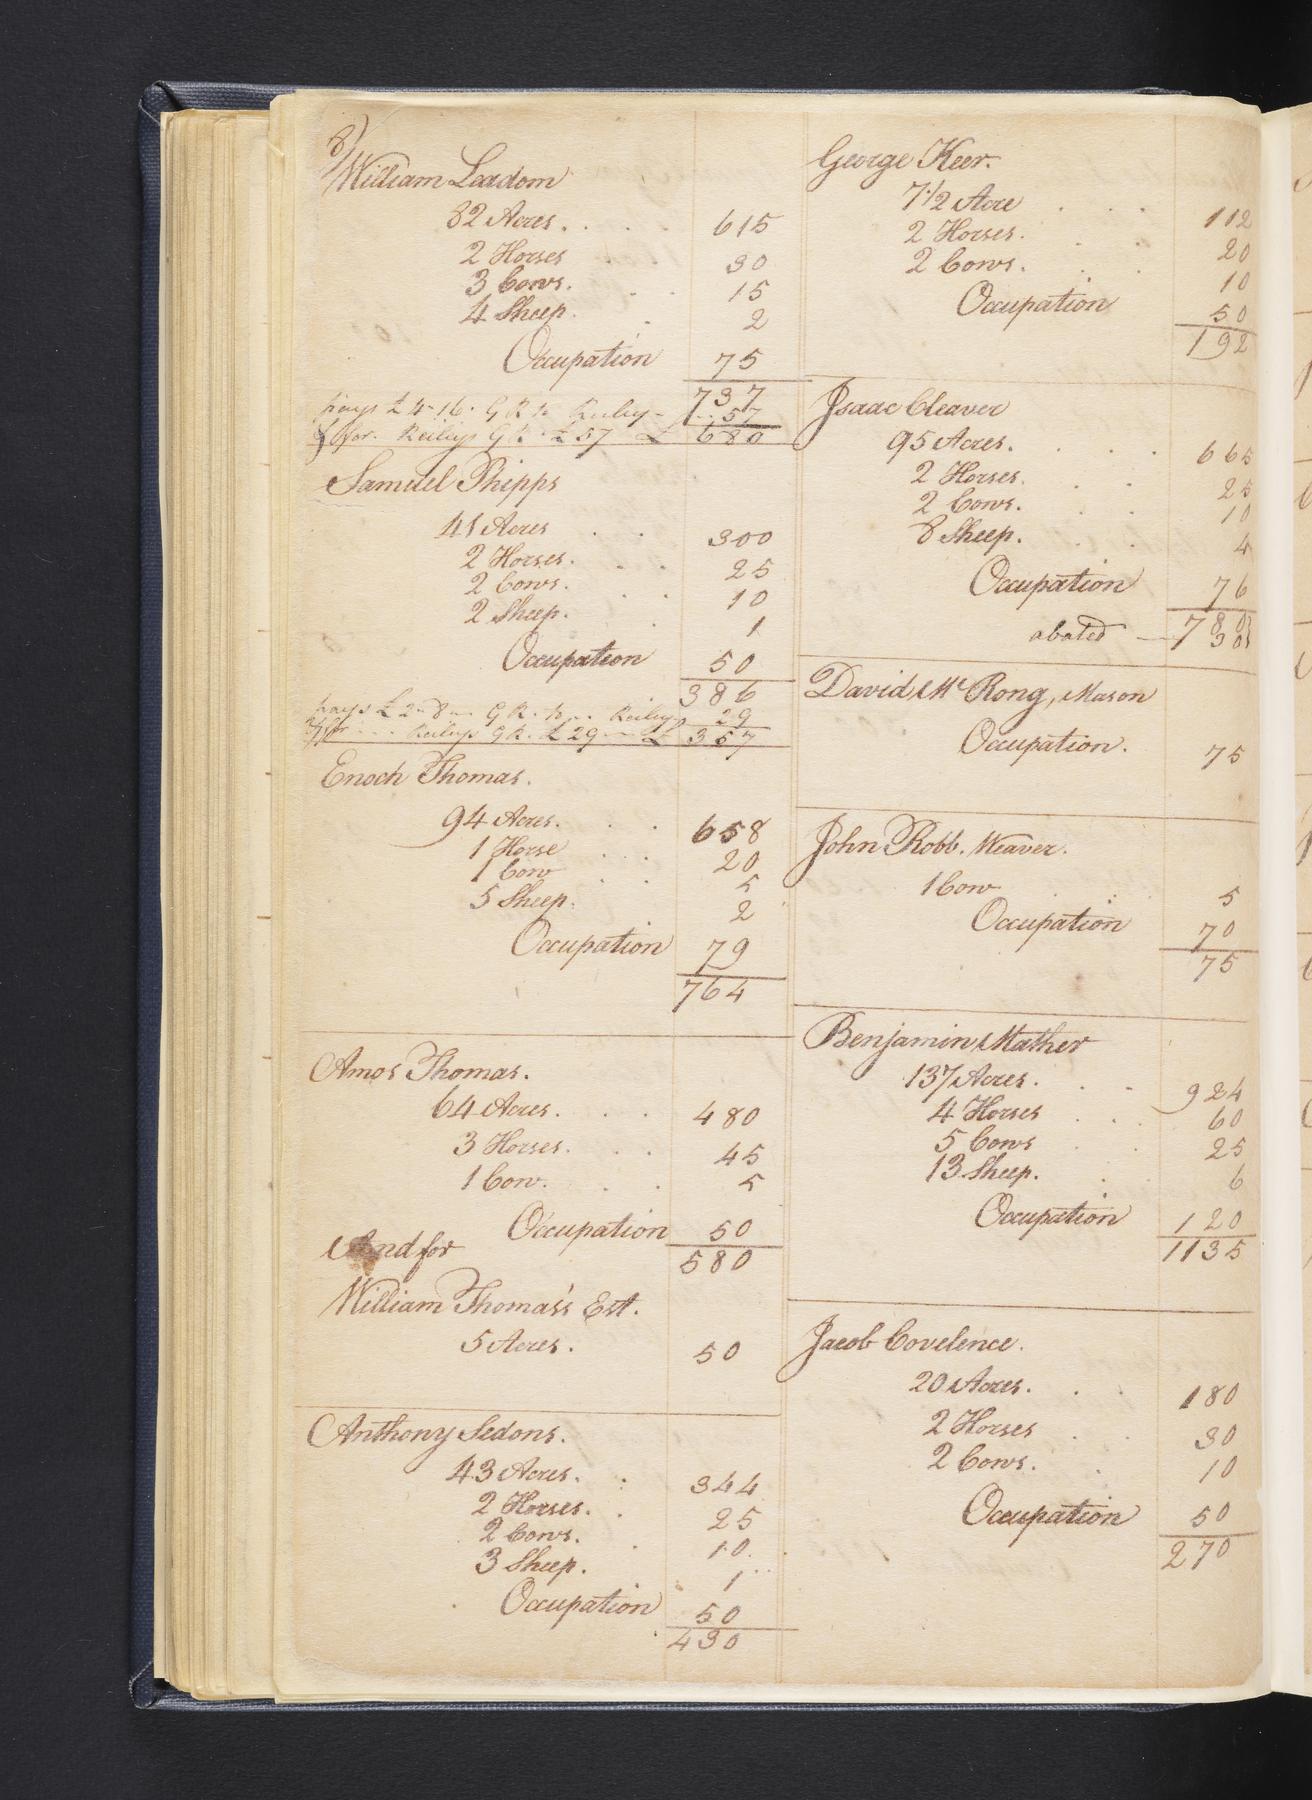 8)
William Leadom
82 Acres. . . . 615
2 Horses 30
3 Cows. . . 15
4 Sheep. . 2
Occupation 75
737
pays £4-16. G R to Reiley - 57
for. Reileys G R. £57 £ 680
Samuel Phipps
41 Acres . . 300
2 Horses. . . 25
2 Cows. . . 10
2 Sheep. . 1
Occupation 50
386
pays £2-8- G R. to Reiley 29
for Reileys G R. £29 £ 357
Enoch Thomas.
94 Acres. . . 658
1 Horse . . . 20
1 Cow . . 5
5 Sheep. 2
Occupation 79
764
Amos Thomas.
64 Acres. . . . 480
3 Horses. . . 45
1 Cow. . . 5
Occupation 50
And for 580
William Thomas's Est.
5 Acres. 50
Anthony Sedons.
43 Acres. . 344
2 Horses. . 25
2 Cows. . 10.
3 Sheep. 1
Occupation 50
430
George Keer.
7 1/2 Acre . . . 112
2 Horses. . . 20
2 Cows. . . 10
Occupation 50
192
Isaac Cleaver
95 Acres. . . . 665
2 Horses. . . 25
2 Cows. . . 10
8 Sheep. . . 4
Occupation 76
780
abated — 30
David McRong, Mason
Occupation. 75
John Robb. Weaver.
1 Cow . . 5
Occupation 70
75
Benjamin Mather
137 Acres. . . 924
4 Horses . . . 60
5 Cows . . 25
13 Sheep. . 6
Occupation 120
1135
Jacob Covelence.
20 Acres. . . 180
2 Horses . . 30
2 Cows. . 10
Occupation 50
270